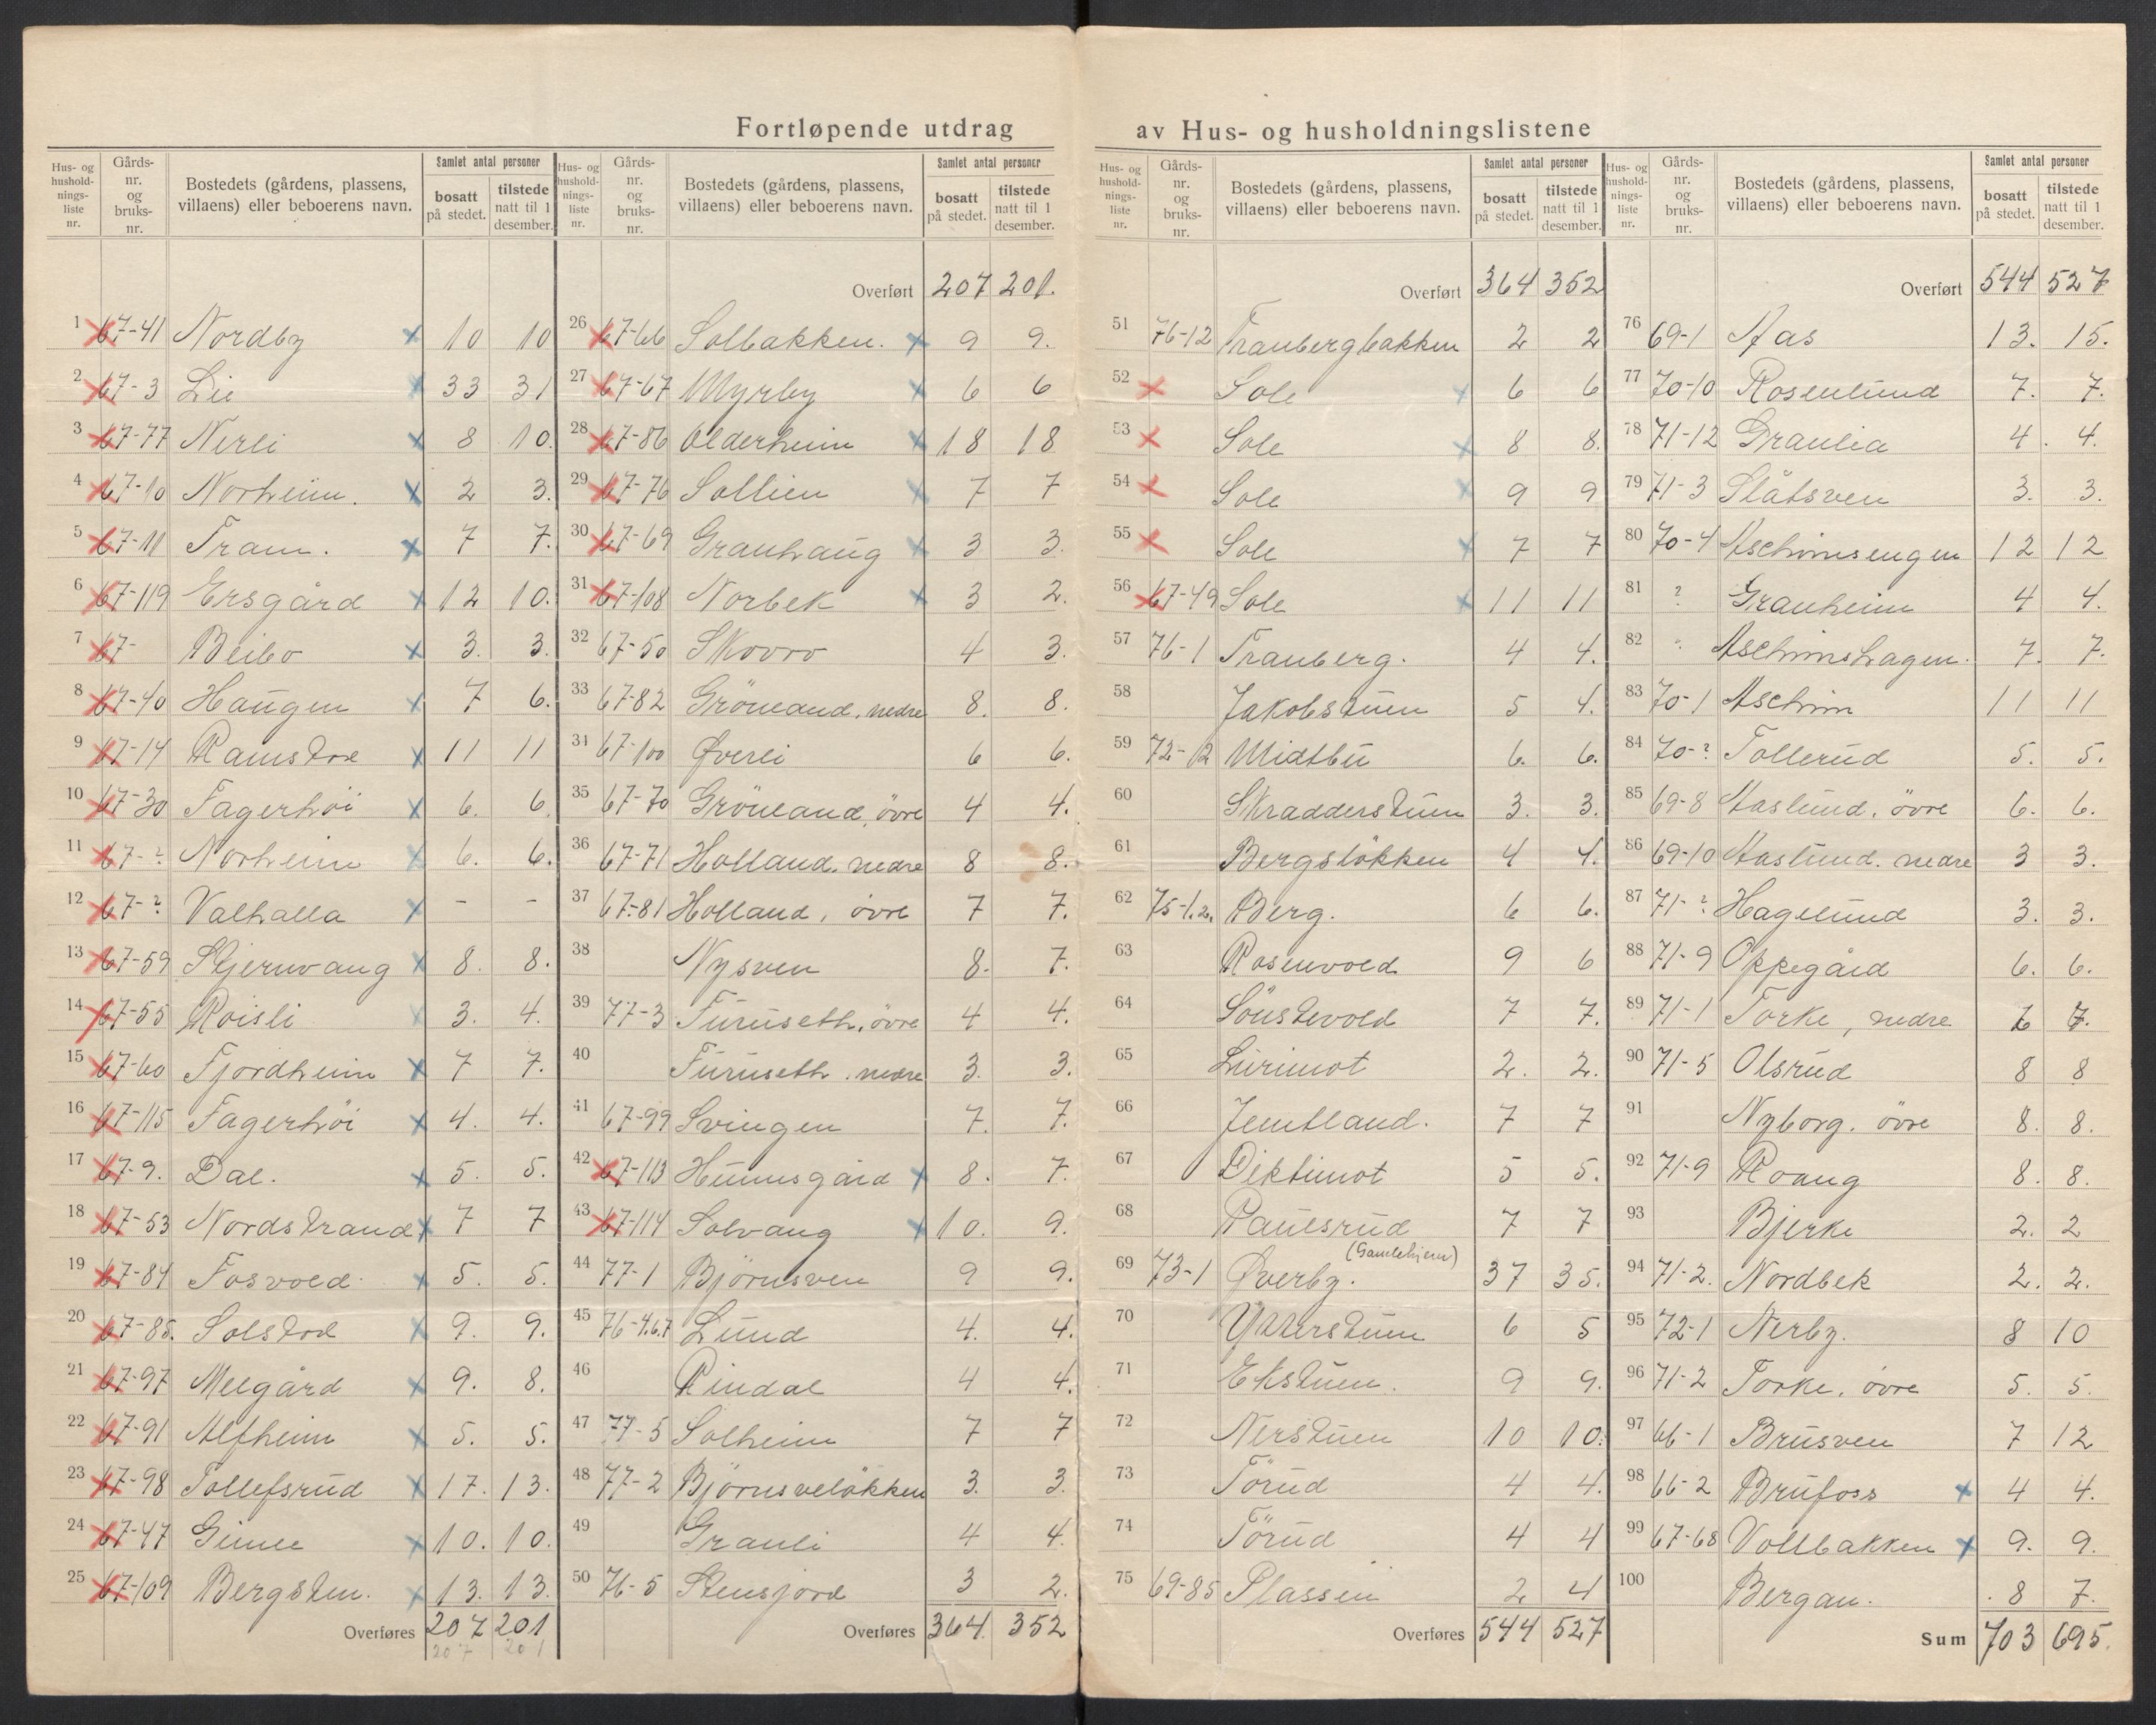 Fortløpende utdrag av Hus- og husholdningslistene
Hus- og husholdningsliste nr. | Gårdsnr. og bruksnr. | Bostedets (gårdens, plassens, villaens) eller beboerens navn. | Samlet antal personer bosatt på stedet. | tilstede natt til 1 desember.
1 67-41 Nordby x 10 10
2 67-3 Lie x 33 31
3 67-77 Nerli x 8 10.
4 67-10 Norheim. x 2 3.
5 67-11 Fram. x 7 7.
6 67-119 Ersgård x 12 10.
7 67- Beibo x 3. 3.
8 67-40 Haugen x 7 6.
9 67-14 Ramstad x 11 11
10 67-30 Fagerhöi x 6. 6
11 67-? Norheim x 6. 6.
12 67-? Valhalla x - -
13 67-59 Stjernvang x 8. 8.
14 67-55 Roisli x 3. 4.
15 67-60 Fjordheim x 7 7.
16 67-115 Fagerhöi x 4. 4.
17 67-9. Dal. x 5. 5.
18 67-53 Nordstrand x 7 7
19 67-84 Fosvold x 5. 5.
20 67-85. Solstad x 9. 9.
21 67-97 Melgård x 9. 8.
22 67-91 Alfheim x 5. 5.
23 67-98 Tollefsrud x 17. 13.
24 67-47 Gimle x 10. 10.
25 67-109 Bergsten. x 13. 13.
Overføres 207 201
207 201
Hus- og husholdningsliste nr. | Gårdsnr. og bruksnr. | Bostedets (gårdens, plassens, villaens) eller beboerens navn. | Samlet antal personer bosatt på stedet. | tilstede natt til 1 desember.
Overført 207 201.
26 67-66 Solbakken. x 9 9.
27 67-67 Myrby x 6 6
28 67-86 Olderheim x 18 18
29 67-76 Sollien x 7 7
30 67-69 Granhaug x 3 3.
31 67-108 Norbek x 3 2.
32 67-50 Skovro 4 3.
33 67-82 Grönland, nedre 8. 8.
34 67-100 Øverli 6 6.
35 67-70 Grönland, övre 4 4.
36 67-71 Holland. nedre 8 8.
37 67-81 Holland, övre 7 7.
38 Nysven 8. 7.
39 77-3 Furuseth, övre 4 4.
40 Furuseth. nedre 3. 3.
41 67-99 Svingen 7. 7.
42 67-113 Hunnsgård x 8. 7.
43 67-114 Solvang x 10. 9.
44 77-1 Björnsven 9 9.
45 76-4.6.7 Lund 4. 4.
46 Rindal 4 4.
47 77-5 Solheim 7 7
48 77-2 Björnsvelökken 3. 3.
49 Granli 4 4.
50 76-5 Stensjord 3 2.
Overføres 364. 352
Hus- og husholdningsliste nr. | Gårdsnr. og bruksnr. | Bostedets (gårdens, plassens, villaens) eller beboerens navn. | Samlet antal personer bosatt på stedet. | tilstede natt til 1 desember.
Overført 364 352
51 76-12 Tranbergbakken 2 2
52 Sole x 6 6
53 Sole x 8 8.
54 Sole x 9 9
55 Sole x 7 7
56 67-49 Sole x 11 11
57 76-1 Tranberg. 4 4.
58 Jakobstuen 5 4.
59 72-12 Midtbu 6. 6.
60 Skradderstuen 3. 3.
61 Bergslökken 4 4.
62 75-1.2. Berg. 6 6.
63 Rosenvold 9 6
64 Sönstevold 7 7.
65 Lurimot 2. 2.
66 Jemtland. 7 7
67 Diktimot 5 5.
68 Paulsrud 7 7
69 73-1 Øverby. (Gamlehjem) 37 35.
70 Ytterstuen 6 5
71 Ekstuen. 9 9.
72 Nerstuen 10 10.
73 Törud 4 4.
74 Törud 4 4
75 69-85 Plassen 2 4
Overføres 544 527
Hus- og husholdningsliste nr. | Gårdsnr. og bruksnr. | Bostedets (gårdens, plassens, villaens) eller beboerens navn. | Samlet antal personer bosatt på stedet. | tilstede natt til 1 desember.
Overført 544 527
76 69-1 Aas 13. 15.
77 70-10 Rosenlund 7. 7.
78 71-12 Granlia 4. 4.
79 71-3 Slåtsven 3. 3.
80 70-4 Aschimsengen 12 12
81 ? Granheim 4 4.
82 Aschimshagen. 7. 7.
83 70-1 Aschim 11 11
84 70-? Tollerud 5. 5.
85 69-8 Aaslund, övre 6. 6.
86 69-10 Aaslund. nedre 3 3.
87 71-? Hagelund 3. 3.
88 71-9 Oppegård 6. 6.
89 71-1 Torke, nedre 7.
90 71-5 Olsrud 8 8
91 Nyborg. övre 8. 8.
92 71-9 Roang 8. 8.
93 Bjerke 2. 2
94 71-2. Nordbek 2. 2.
95 72-1 Nerby. 8 10
96 71-2 Torke, övre 5. 5.
97 66-1 Brusven 7 12
98 66-2 Brufoss x 4 4.
99 67-68 Vollbakken x 9. 9.
100 Bergan. 8 7.
Sum 703 695.